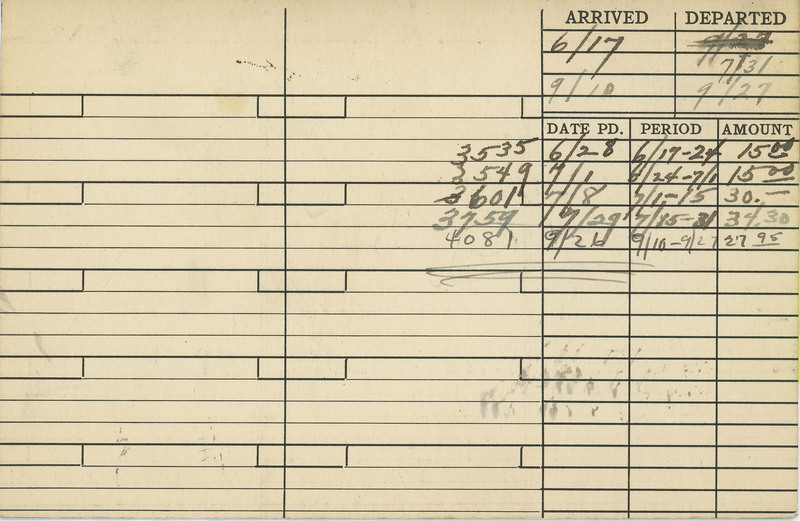 ARRIVED DEPARTED
6/17
7/31
9/10 9/27
DATE PD. PERIOD AMOUNT
3535 6/28 6/17-24 15 00
3549 7/1 6/24-7/1 15 00
3601 7/8 7/1-15 30.—
3759 7/29 7/15-31 34.30
4081 9/26 9/10-9/27 27 95